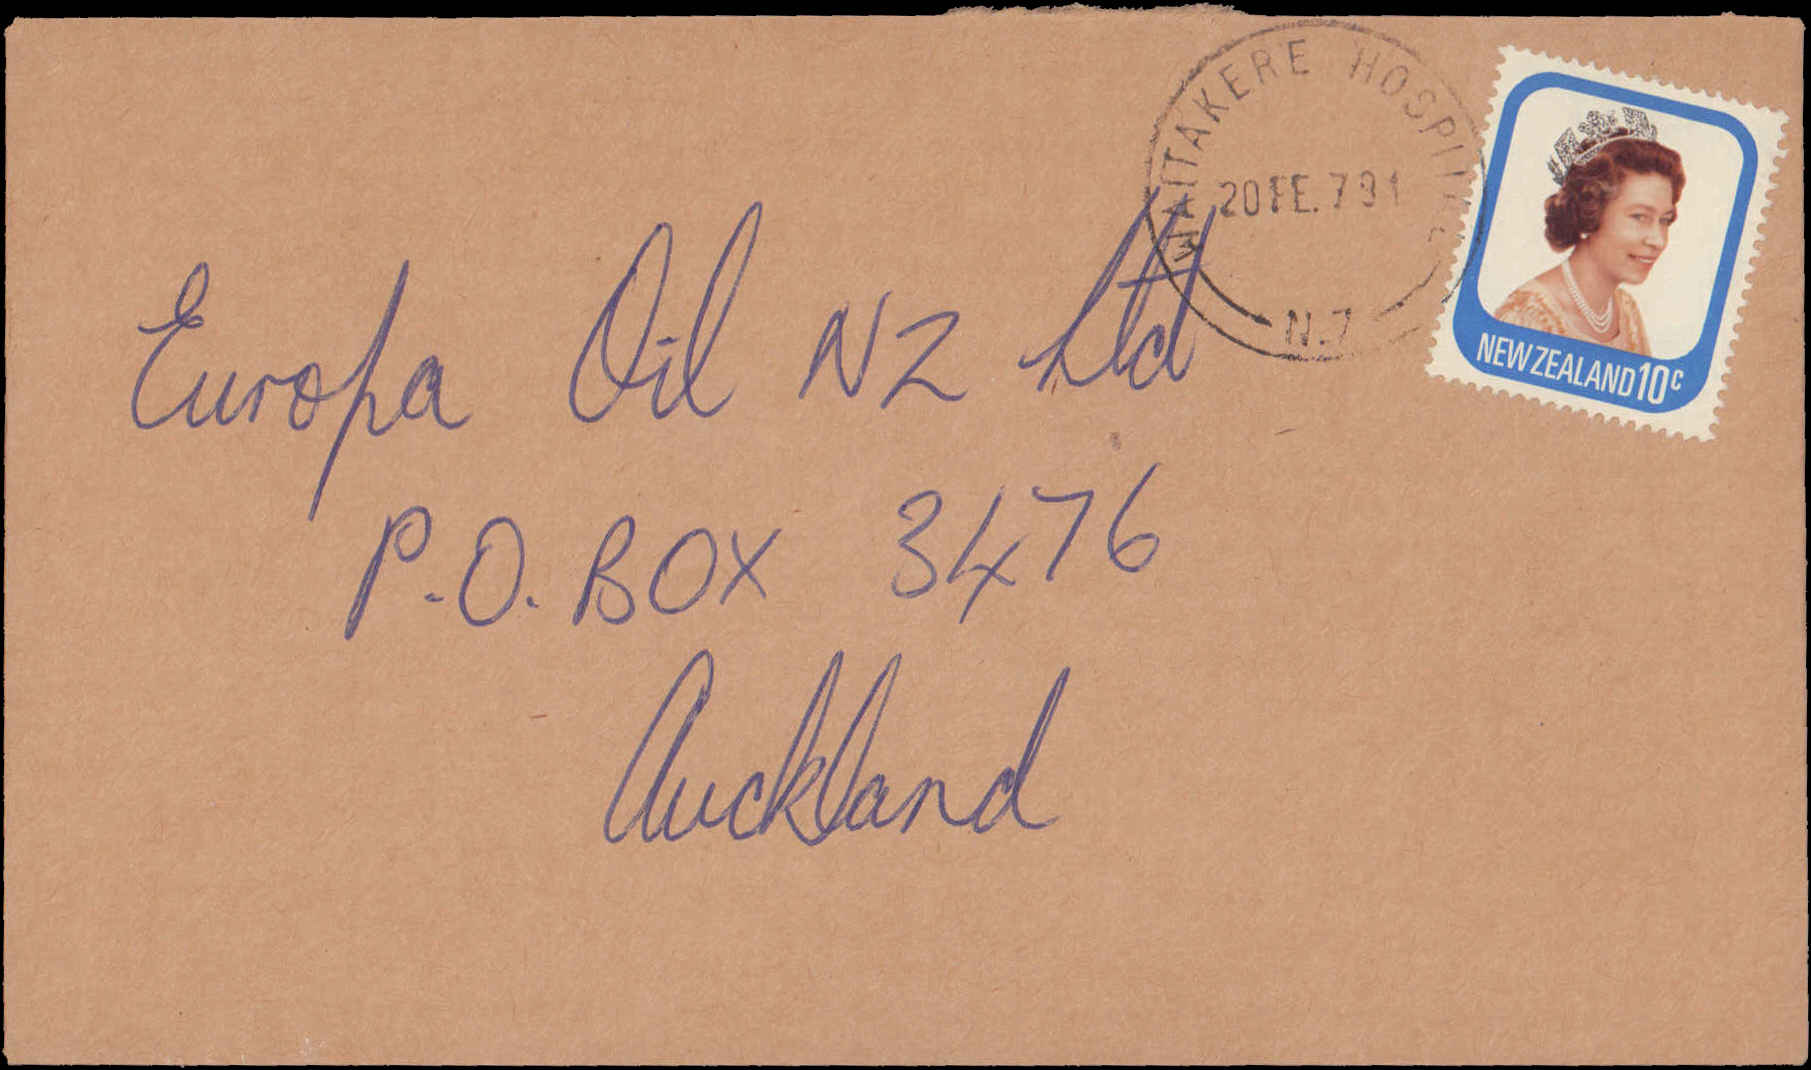 WAITAKERE HOSPITAL
20 FE. 7 91
N.Z
NEW ZEALAND 10c
Europa Oil NZ Ltd
P.O. BOX 3476
Auckland